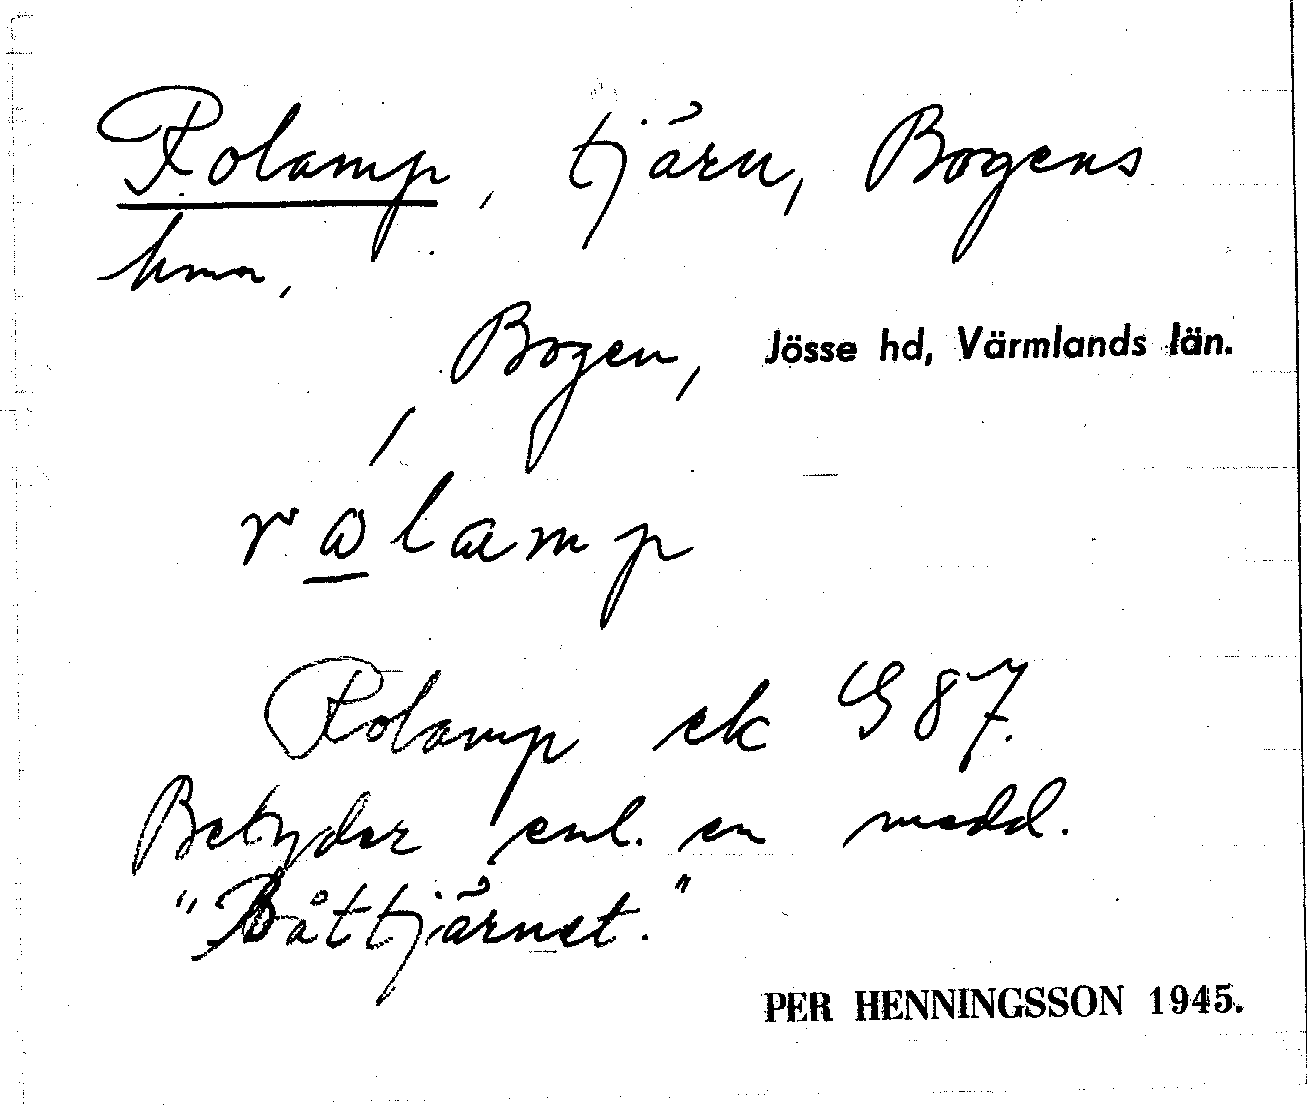 Rolamp, tjärn, Bogens
hmn,
Bogen, Jösse hd, Värmlands län.
rolamp
Rolamp ek G 87.
Betyder enl. en medd.
"Båttjärnet."
PER HENNINGSSON 1945.